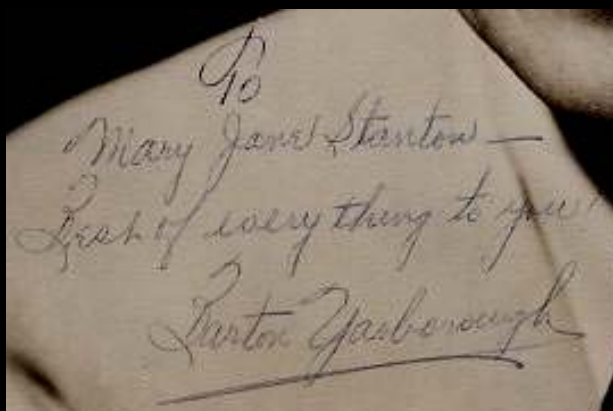 To
Mary Jane Stanton —
Best of every thing to you!
Barton Yarborough